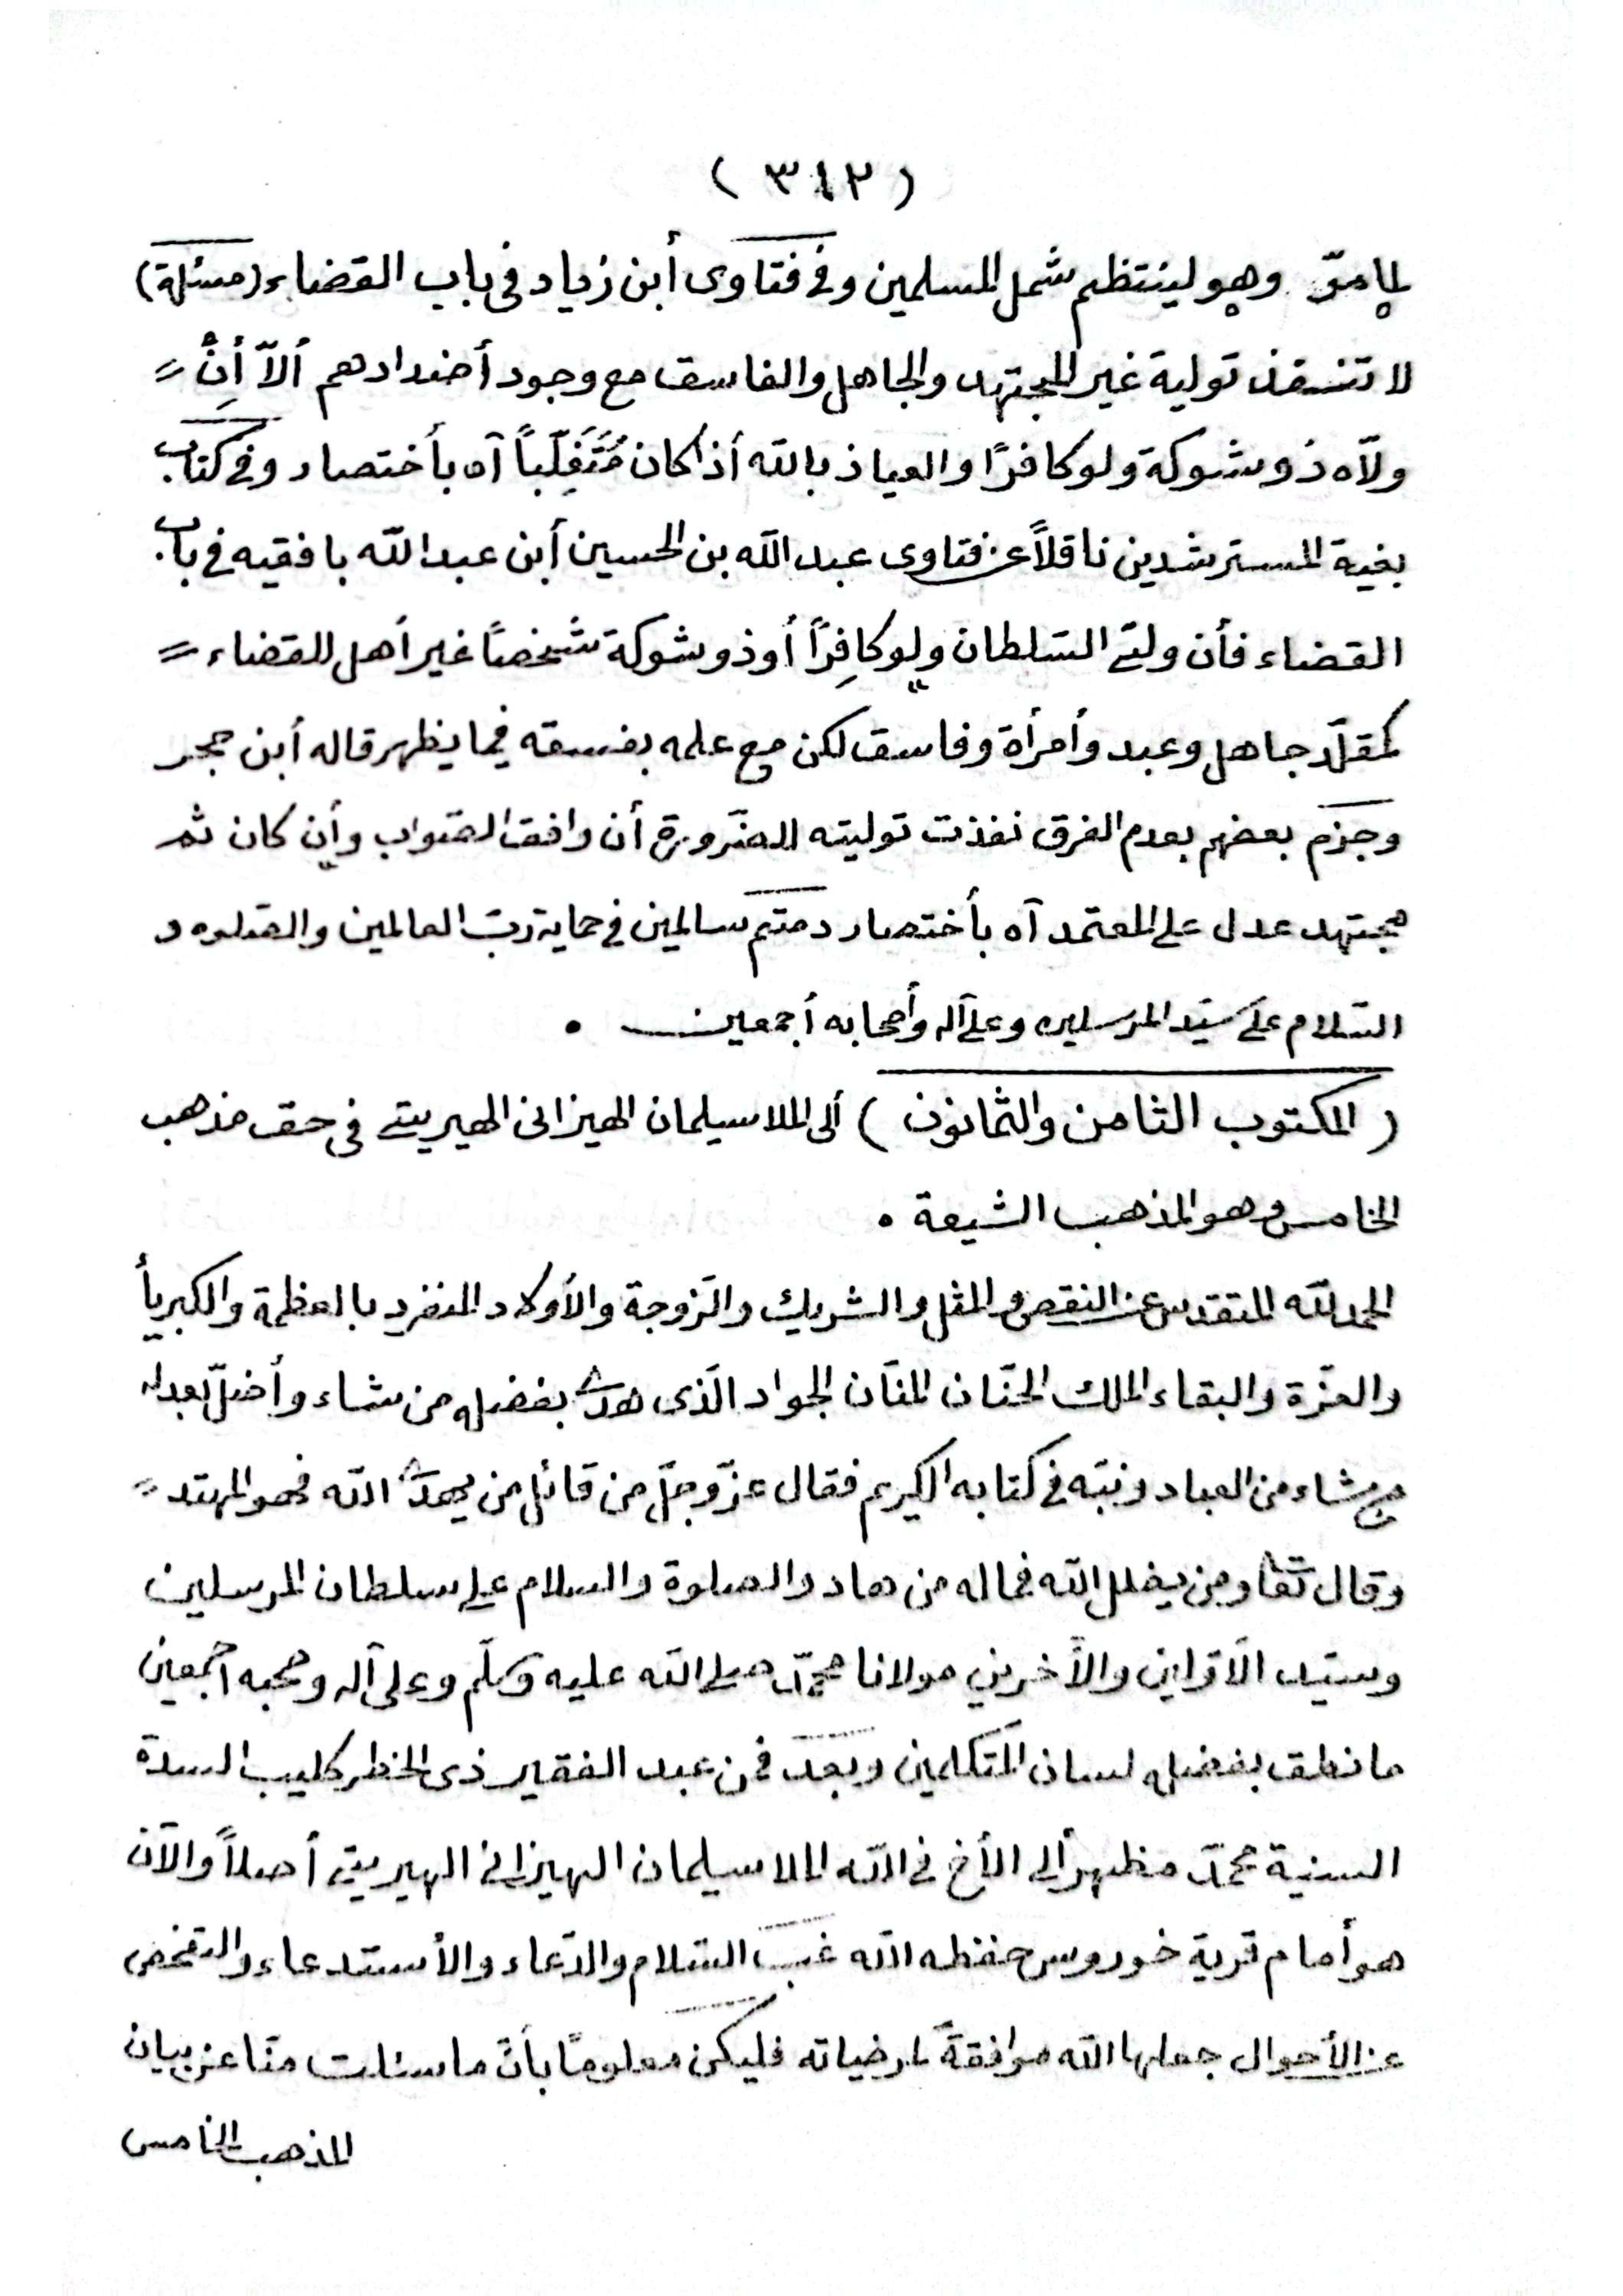 ( ٣١٢ )
لما مرّ وهو لينتظم شمل المسلمين وفي فتاوى أبن زياد في باب القضاء (مسئلة)
لا تنفذ تولية غير المجتهد والجاهل والفاسق مع وجود أضدادهم ألاّ أن
ولاّه ذو شوكة ولو كافرًا والعياذ بالله أذا كان مُتَغَلِّباً آه بأختصار وفي كتاب
بغية المسترشدين ناقلاً عن فتاوى عبد الله بن الحسين أبن عبد الله بافقيه في باب
القضاء فأن ولّى السّلطان ولو كافِرًا أو ذو شوكة شخصًا غير أهل للقضاء
كمقلّد جاهل وعبد وأمرأة وفاسق لكن مع علمه بفسقه فيما يظهر قاله أبن حجر
وجزم بعضهم بعدم الفرق نفذت توليته للضّرورة أن وافق الصّواب وأن كان ثم
مجتهد عدل على المعتمد آه بأختصار دمتم سالمين في حماية ربّ العالمين والصّلوه و
السّلام على سيّد المرسلين وعلى آله وأصحابه أجمعين .
( المكتوب الثامن والثمانون ) ألى الملا سيلمان الهيزانى الهيريتي في حق مذهب
الخامس وهو المذهب الشيعة .
الحمد لله المتقدس عن النقص والمثل والشريك والزّوجة والأولاد المنفرد بالعظمة والكبريأ
والعزّة والبقاء الملك الحنّان المنّان الجواد الّذى هدى بفضله من شاء وأضلّ بعدله
من شاء من العباد ونبّه في كتابه الكريم فقال عزّ وجلّ من قائل من يهد الله فهو المهتد
وقال تعا ومن يضلل الله فما له من هاد والصلوة والسلام على سلطان المرسلين
وسيّد الأوّلين والأخرين مولانا محمّد صلى الله عليه وسلّم وعلى آله وصحبه اجمعين
ما نطق بفضله لسان المتكلمين وبعد فمن عبد الفقير ذى الخطر كليب السدة
السنية محمّد مظهر ألى الأخ في الله الملا سيلمان الهيزانى الهيريتي أصلاً والآن
هو أمام قرية خوروس حفظه الله غبّ السّلام والدّعاء والأستدعاء والتفحّص
عن الأحوال جعلها الله موافقةً لمرضياته فليكن معلومًا بأنّ ما سئلت منّا عن بيان
المذهب الخامس